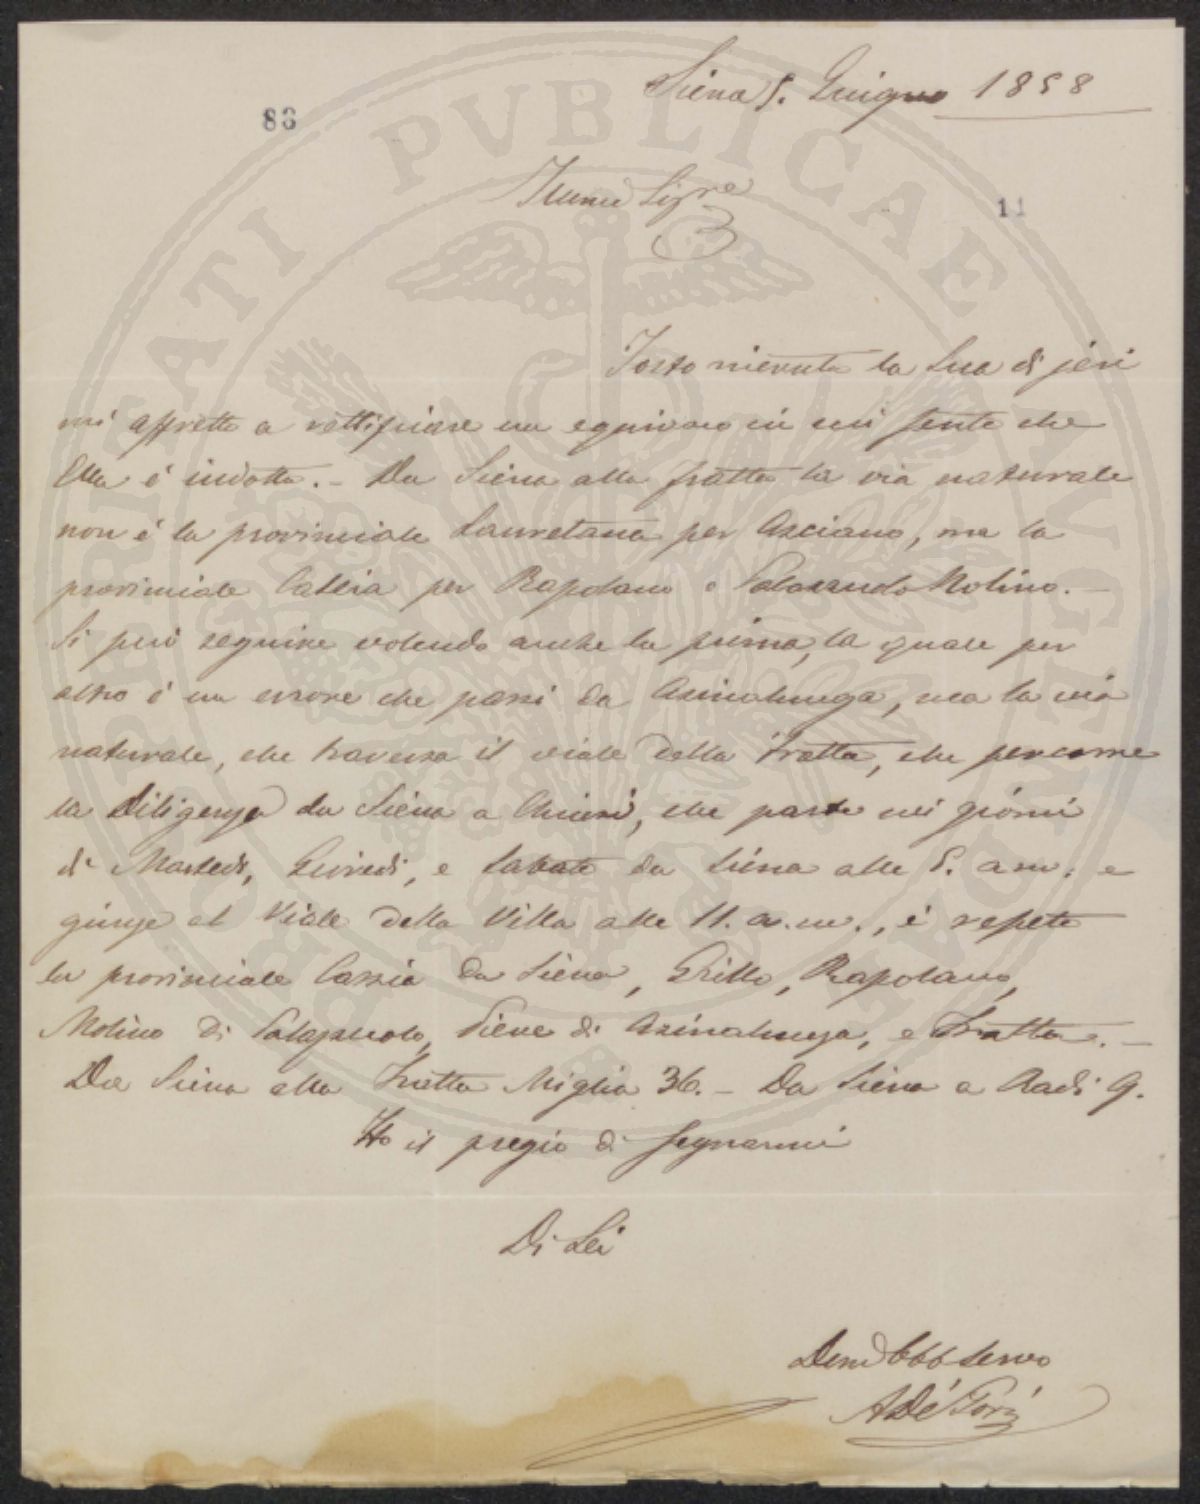 Siena 5. Giugno 1858
83
Illmo Sigre
11
Tosto ricevuta la Sua di jeri
mi affretto a rettificare un equivoco in cui sento che
Ella è indotta. - Da Siena alla Fratta la via naturale
non è la provinciale Lauretana per Asciano, ma la
provinciale Cassia per Rapolano e Molino. -
Si può seguire volendo anche la prima, la quale per
altro è un errore che passi da Asinalunga, ma la via
naturale, che traversa il viale della Fratta, che percorre
la Diligenza da Siena a Chiusi, che parte nei giorni
di Martedì, Giovedì, e Sabato da Siena alle 5. a m. e
giunge al Viale della Villa alle 11. a. m., è
la provinciale Cassia da Siena, Grillo, Rapolano,
Molino di Palazzuolo, Pieve di Asinalunga, e Fratta. -
Da Siena alla Fratta Miglia 36. - Da Siena a Radi 9.
Ho il pregio di segnarmi
Di Lei
Devmo Obb Servo
A Dé Gori
PRIVATI PVBLICAE